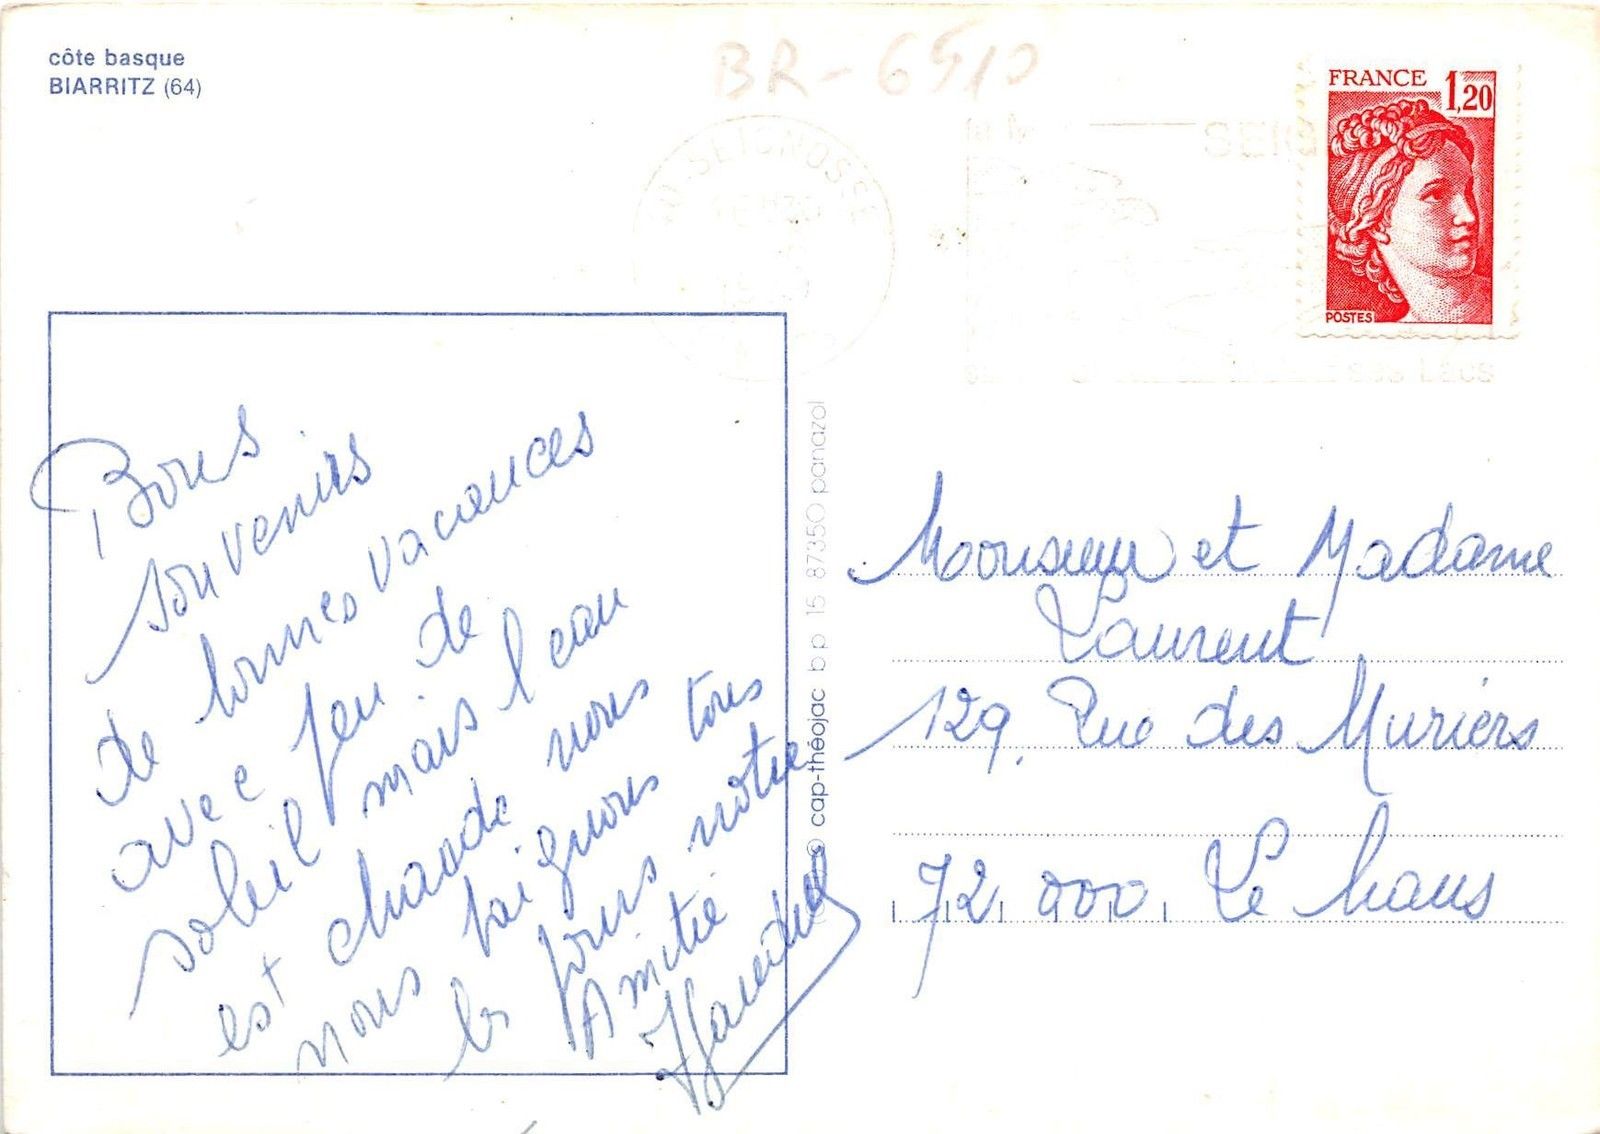 côte basque
BIARRITZ (64)
BR-6510
SEIGNOSSE
FRANCE 1,20
POSTES
ses Lacs
Bons
souvenirs
de bonnes vacances
avec peu de
soleil mais l'eau
est chaude nous
nous baignons tous
les jours notre
Amitié
© cap-théojac bp 15 87350 panazol
Monsieur et Madame
Laurent
129, Rue des Muriers
72 000 Le Mans